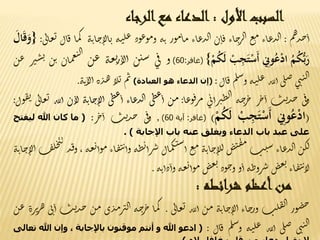 السبب الأول : الدعاء مع الرجاء
أحدهم : الدعاء مع الرجاء فإن الدعاء مأمور به وموعود عليه بالإجابة كما قال تعالى: {وَقَالَ
رَبُّكُمُ ادْعُونِي أَسْتَجِبْ لَكُمْ} (غافر:60) و في سنن الأربعة عن النعمان بن بشير عن
النبي صلى الله عليه وسلم قال: (إن الدعاء هو العبادة) ثم تلا هذه الآية.
وفي حديث آخر خرجه الطبراني مرفوعا: من أعطى الدعاء أعطى الإجابة لأن الله تعالى يقول:
{ادْعُونِي أَسْتَجِبْ لَكُمْ} (غافر: آية 60) , وفي حديث آخر: ( ما كان الله ليفتح
على عبد باب الدعاء ويغلق عنه باب الإجابة ) .
لكن الدعاء سبب مقتض للإجابة مع استكمال شرائطه وانتفاء موانعه , وقد تتخلف الإجابة
لانتفاء بعض شروطه أو وجود بعض موانعه وآدابه .
من أعظم شرائطه :
حضور القلب ورجاء الإجابة من الله تعالى . كما خرجه الترمذي من حديث أبي هريرة عن
النبي صلى الله عليه وسلم قال : ( ادعو الله و أنتم موقنون بالإجابة ، وإن الله تعالى